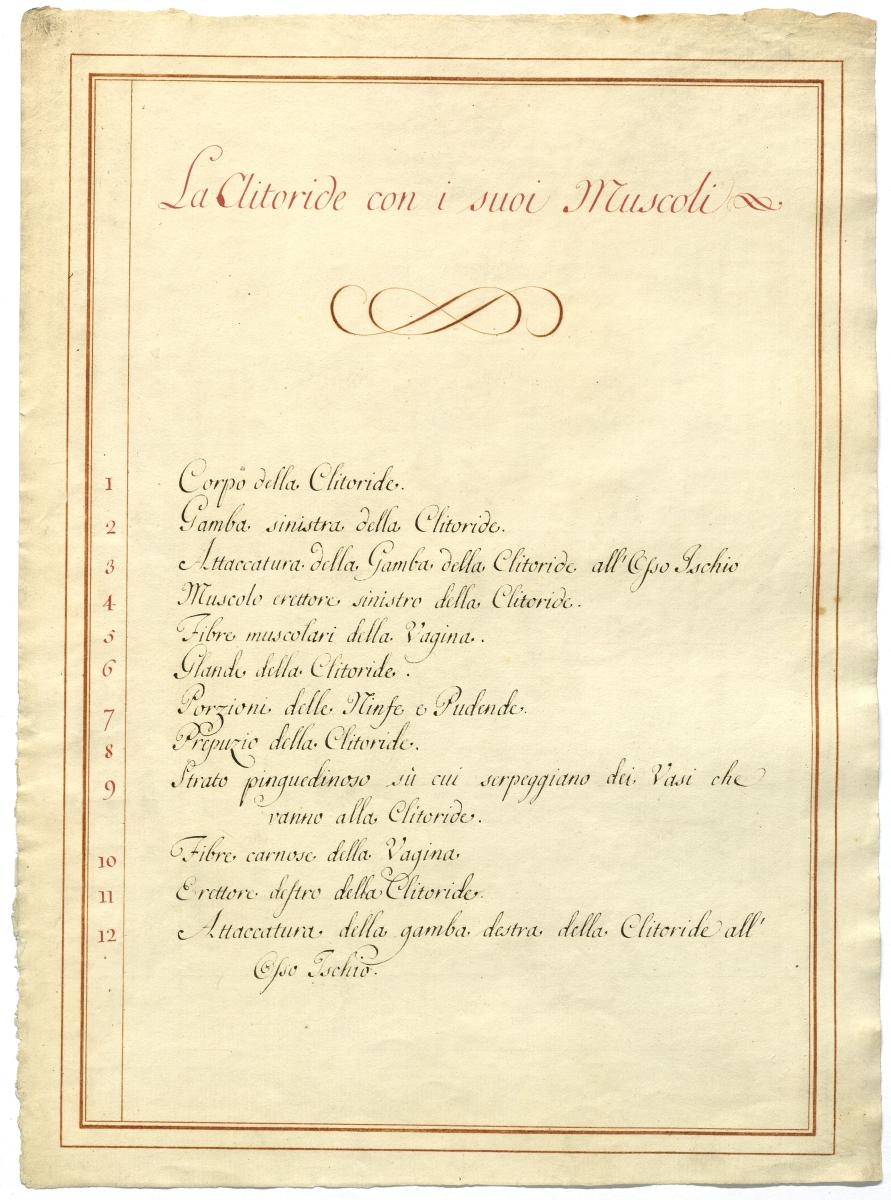 La Clitoride con i suoi Muscoli
1 Corpo della Clitoride.
2 Gamba sinistra della Clitoride.
3 Attaccatura della Gamba della Clitoride all'Osso Ischio
4 Muscolo erettore sinistro della Clitoride.
5 Fibre muscolari della Vagina.
6 Glande della Clitoride.
7 Porzioni delle Ninfe e Pudende.
8 Prepuzio della Clitoride.
9 Strato pinguedinoso sù cui serpeggiano dei Vasi che
vanno alla Clitoride.
10 Fibre carnose della Vagina
11 Erettore destro della Clitoride.
12 Attaccatura della gamba destra della Clitoride all'
Osso Ischio.